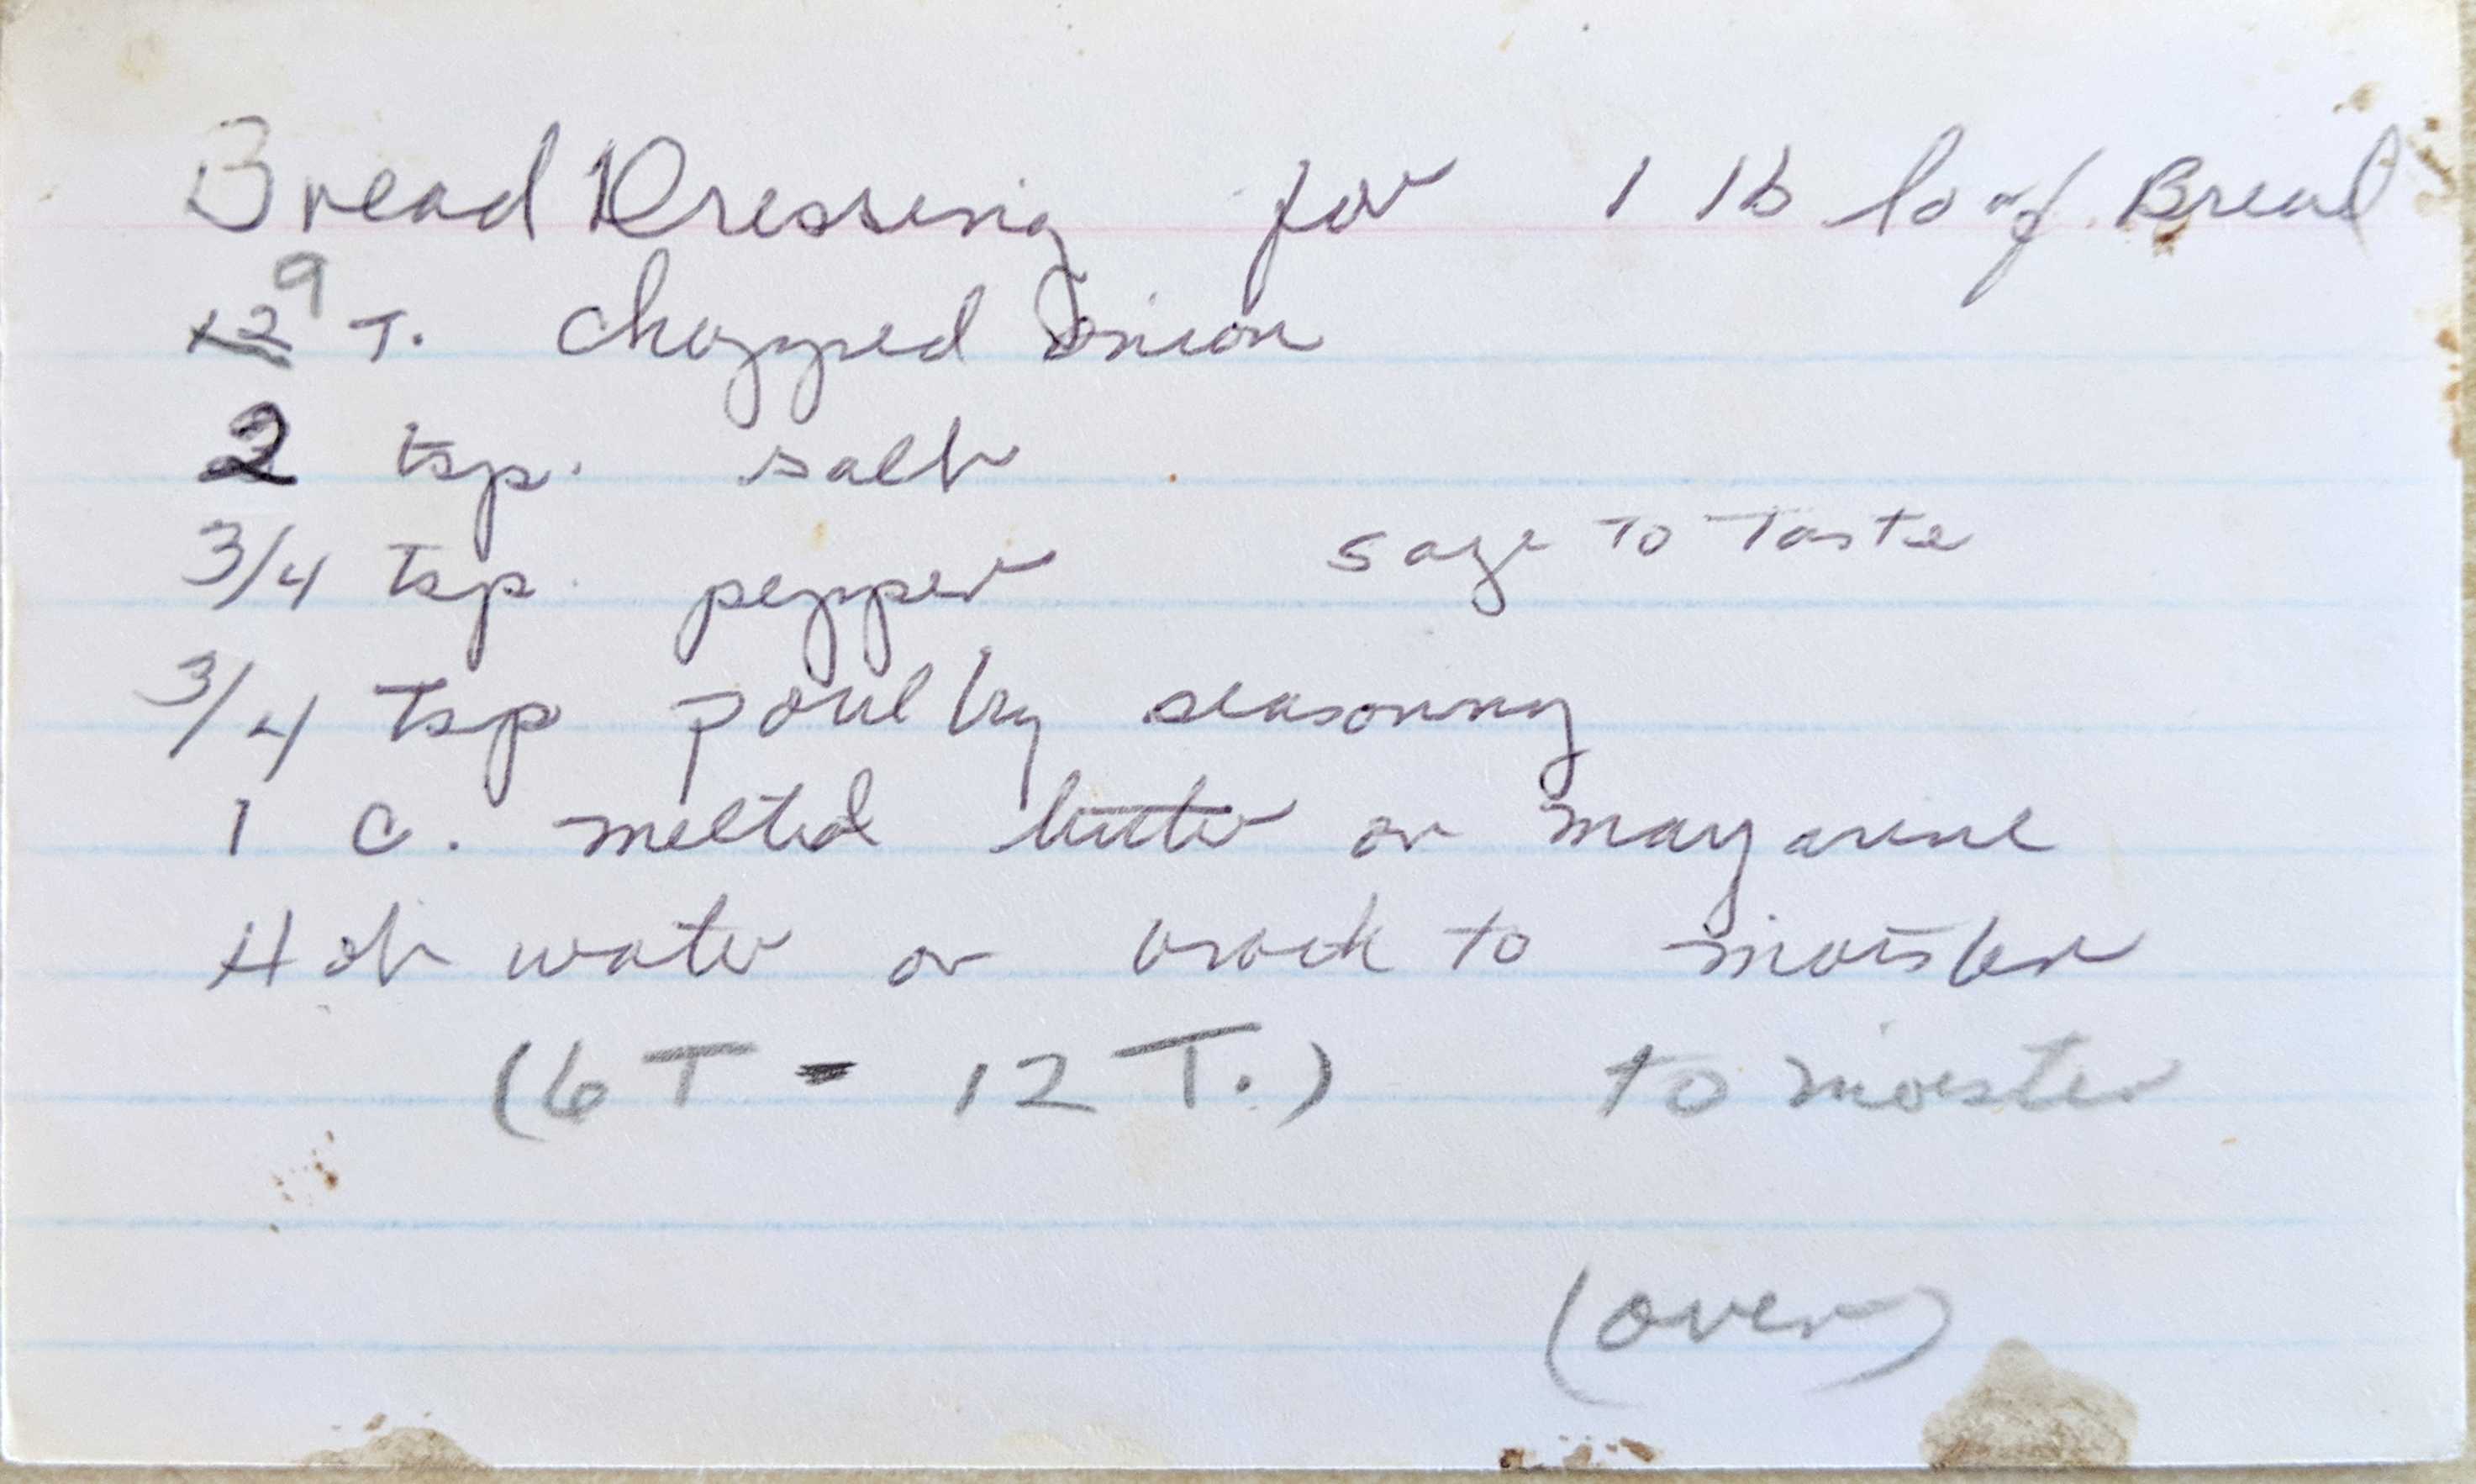 Bread Dressing for 1 lb loaf Bread
9
12 T. chopped onion
2 tsp. salt
3/4 tsp. pepper sage to Taste
3/4 tsp poultry seasoning
1 c. melted butter or margarine
Hot water or to moisten
(6 T - 12 T.) to moisten
(over)